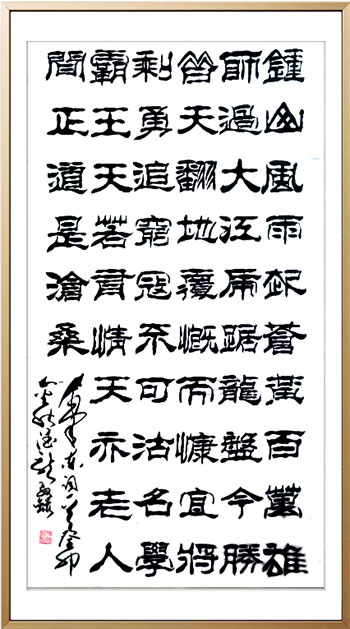 鍾山風雨起蒼黃百萬雄
師過大江虎踞龍盤今勝
昔天翻地覆慨而慷宜將
剩勇追窮寇不可沽名學
霸王天若有情天亦老人
間正道是滄桑
東詞一首癸卯